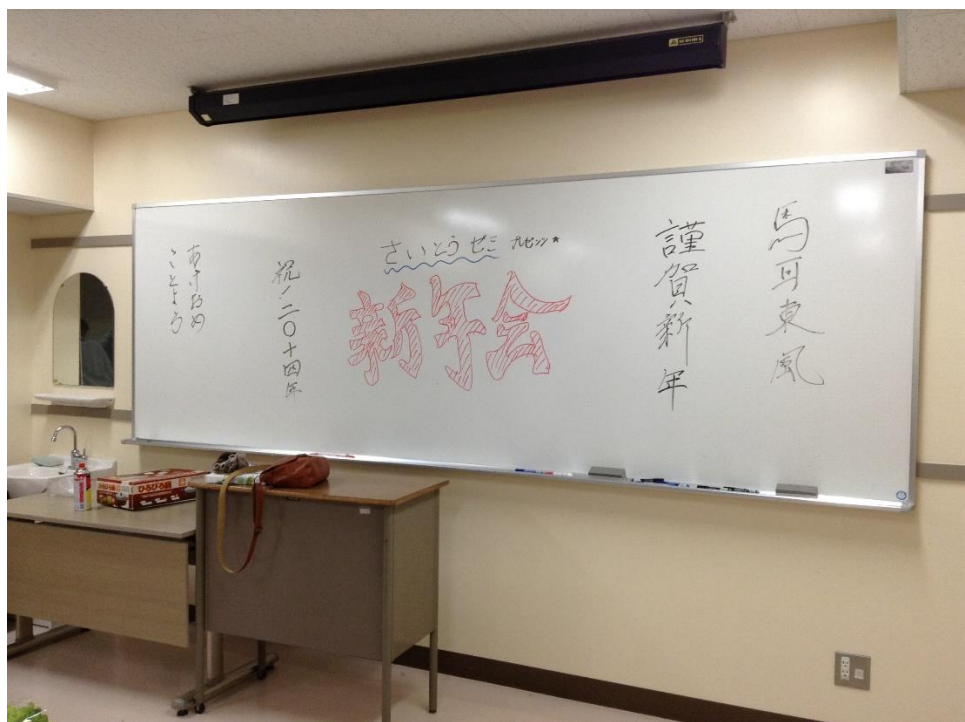 馬耳東風
謹賀新年
さいとうゼミ プレゼンツ★
新年会
祝!二〇十四年
あけおめ
ことよろ
ひろびろ鍋